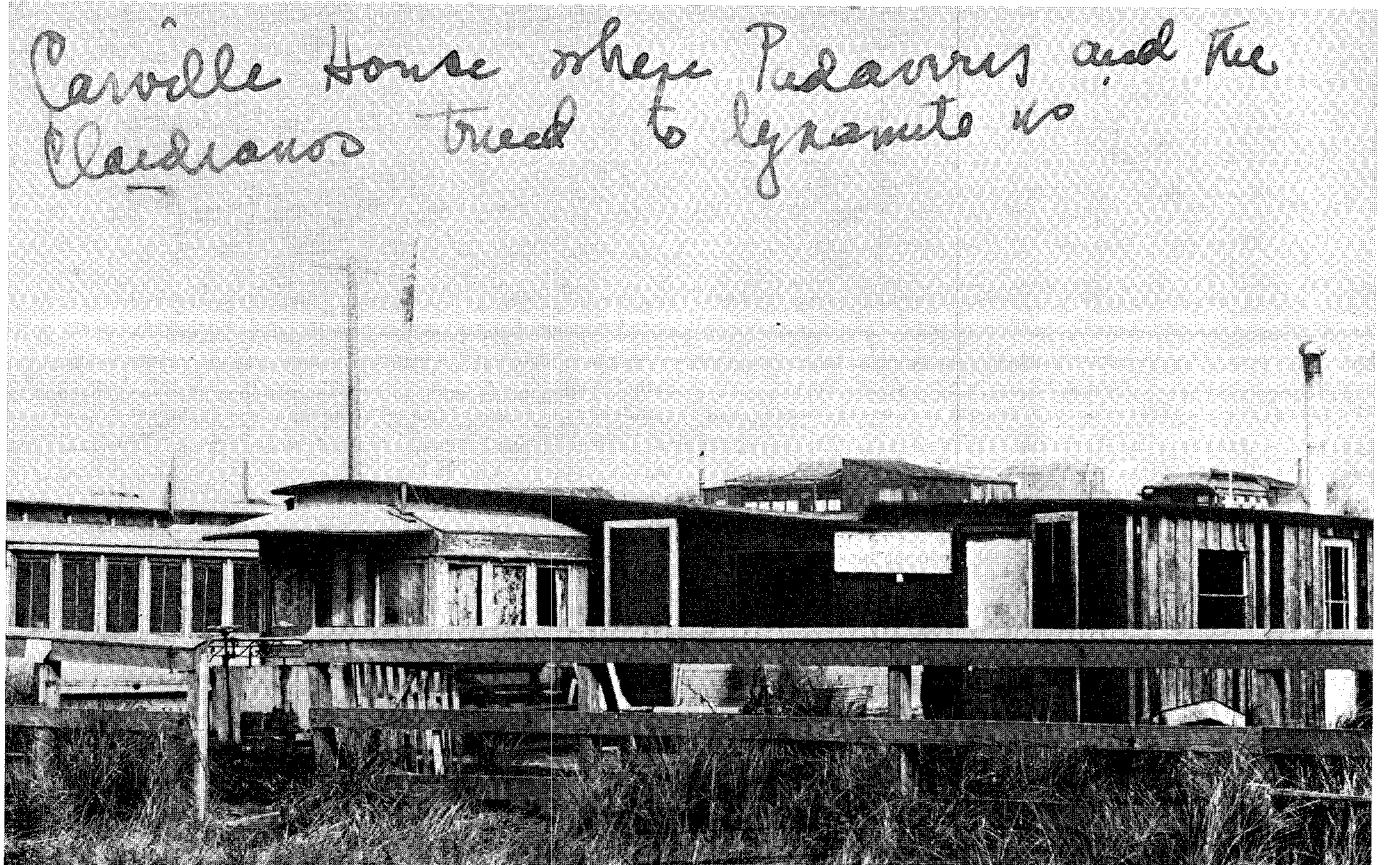 Carville House where Pedavoris and the
Claudianos tried to dynamite us